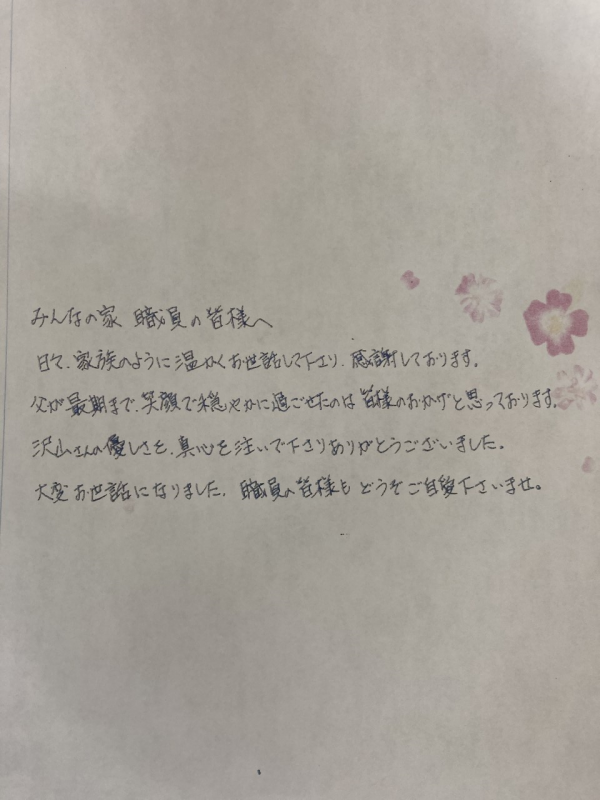 みんなの家 職員の皆様へ
日々、家族のように温かくお世話して下さり、感謝しております。
父が最期まで、笑顔で穏やかに過ごせたのは皆様のおかげと思っております。
沢山さんの優しさを、真心を注いで下さりありがとうございました。
大変お世話になりました。職員の皆様もどうぞご自愛下さいませ。